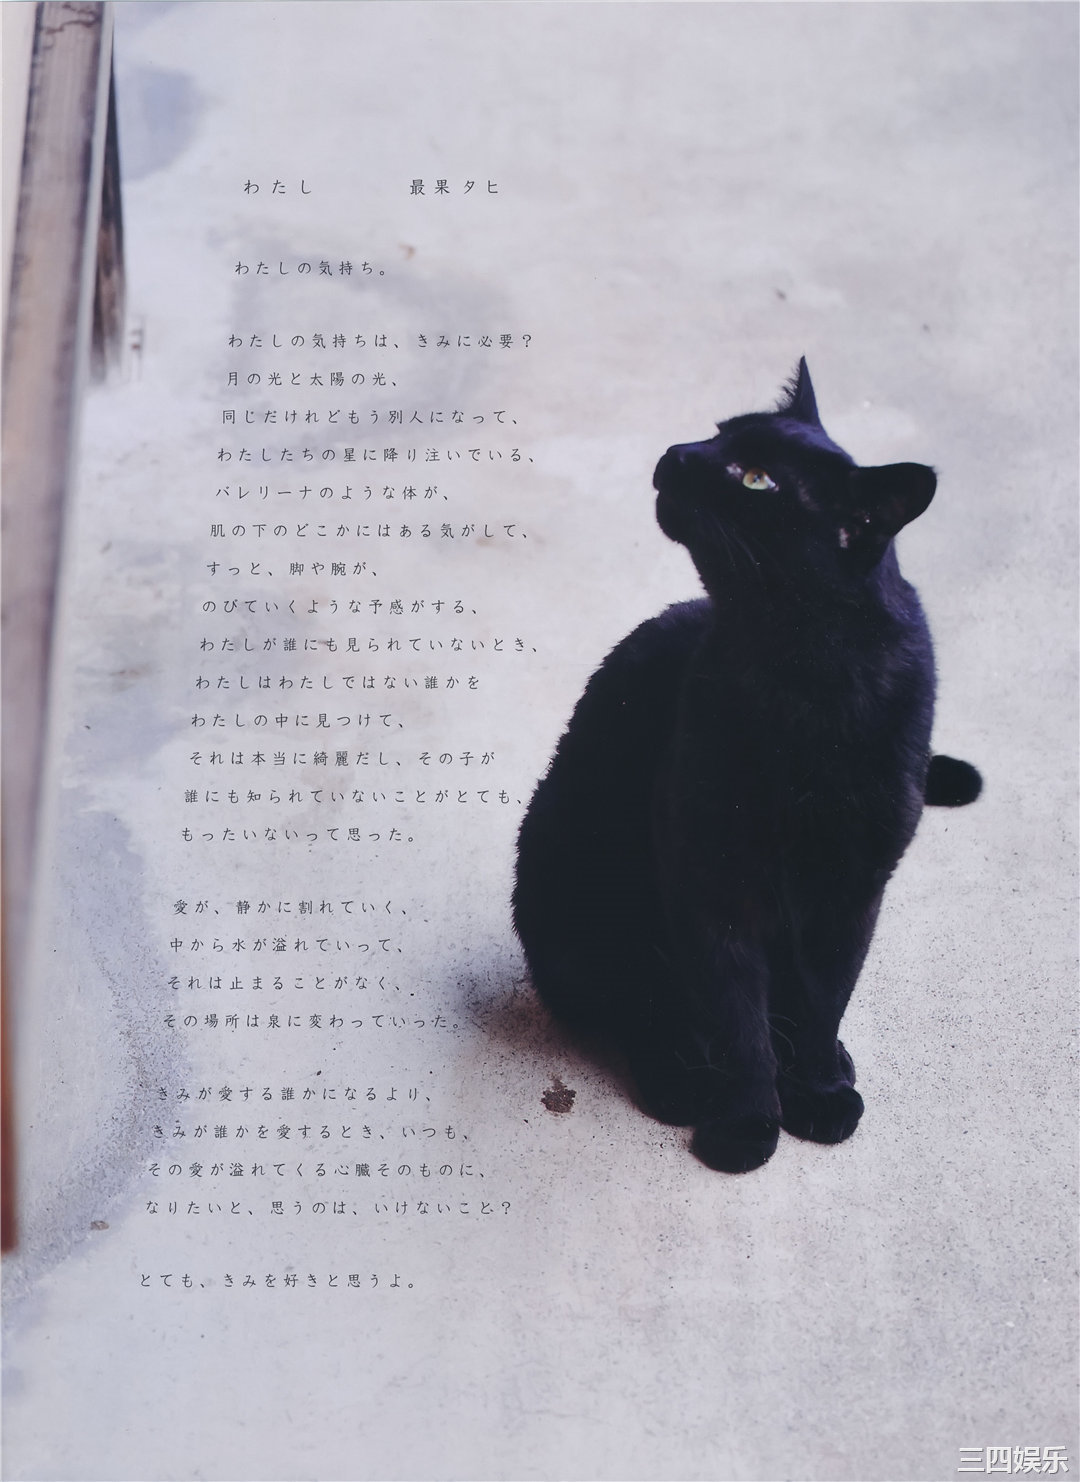 わたし　最果タヒ
わたしの気持ち。
わたしの気持ちは、きみに必要？
月の光と太陽の光、
同じだけれどもう別人になって、
わたしたちの星に降り注いでいる、
バレリーナのような体が、
肌の下のどこかにはある気がして、
すっと、脚や腕が、
のびていくような予感がする、
わたしが誰にも見られていないとき、
わたしはわたしではない誰かを
わたしの中に見つけて、
それは本当に綺麗だし、その子が
誰にも知られていないことがとても、
もったいないって思った。
愛が、静かに割れていく、
中から水が溢れていって、
それは止まることがなく、
その場所は泉に変わっていった。
きみが愛する誰かになるより、
きみが誰かを愛するとき、いつも、
その愛が溢れてくる心臓そのものに、
なりたいと、思うのは、いけないこと？
とても、きみを好きと思うよ。
三四娱乐